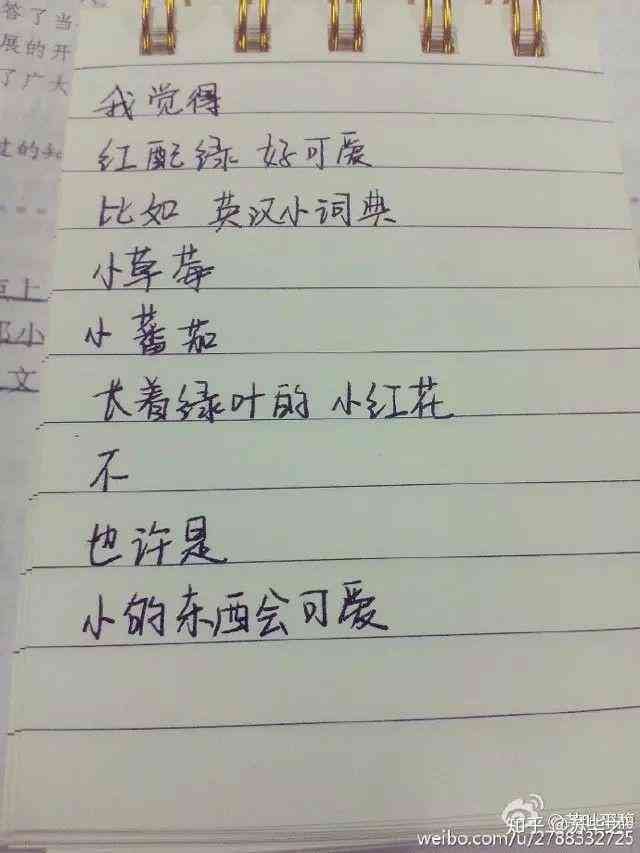 答了当
展的开
了广大
我觉得
红配绿 好可爱
比如 英汉小词典
小草莓
小蕃茄
长着绿叶的 小红花
不
也许是
小的东西会可爱
上
小
文
知乎
weibo.com/u/2788332725